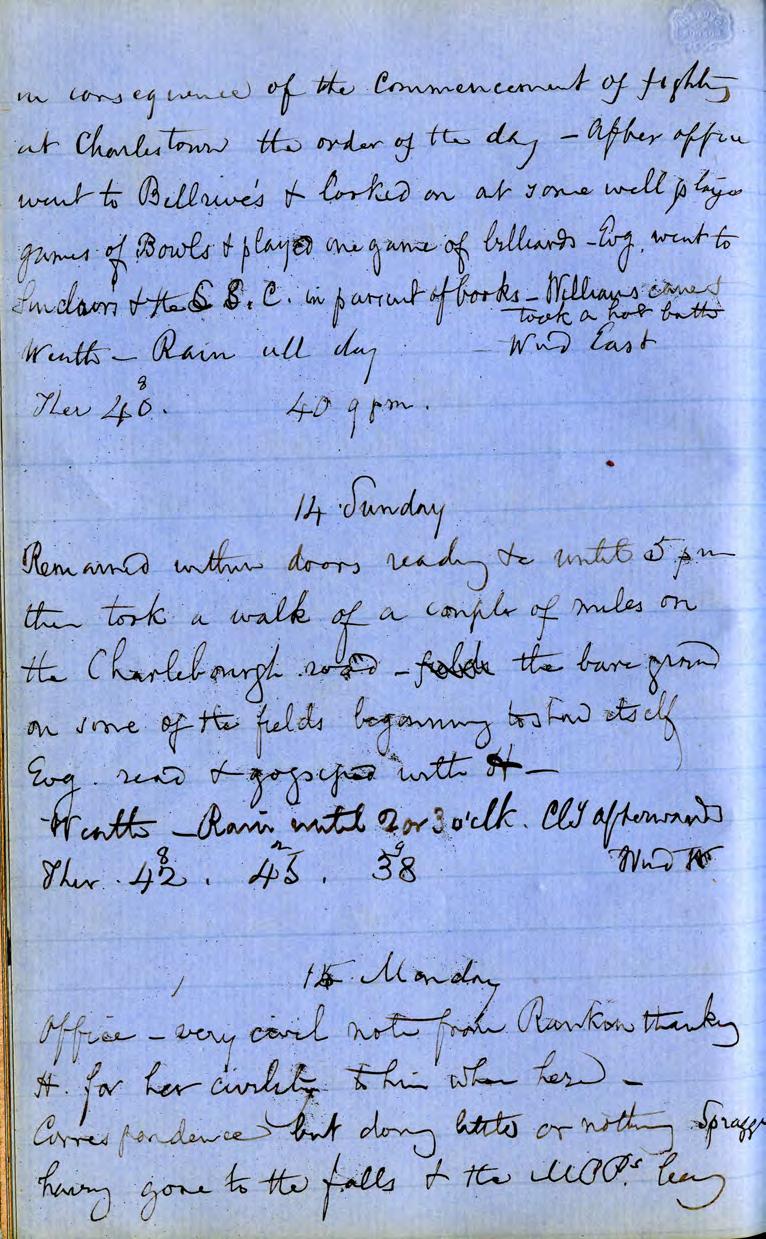 in consequence of the Commencement of fighting
at Charlestown the order of the day – After office
went to Bellrive's & looked on at some well playe
games of Bowls & played one game of billiards – Evg. went to
Sinclairs & the S. C. in pursuit of books – Williams came &
took a hot bath
Weath – Rain all day – Wind East
8
Ther 40. 40 9 pm.
14 Sunday
Remained within doors reading &c until 5 pm
then took a walk of a couple of miles on
the Charlebourgh road – fields the bare ground
on some of the fields beginning to show itself
Evg. read & gogsiped with H –
Weath – Rain until 2 or 3 o'clk. Cly afterwards
8 2 9
Ther. 42. 45. 38 Wind W
15 Monday
Office – very civil note from Rankin thanking
H. for her civility to him when here –
Correspondence but doing little or nothing Spragge
having gone to the falls & the MPPs. being